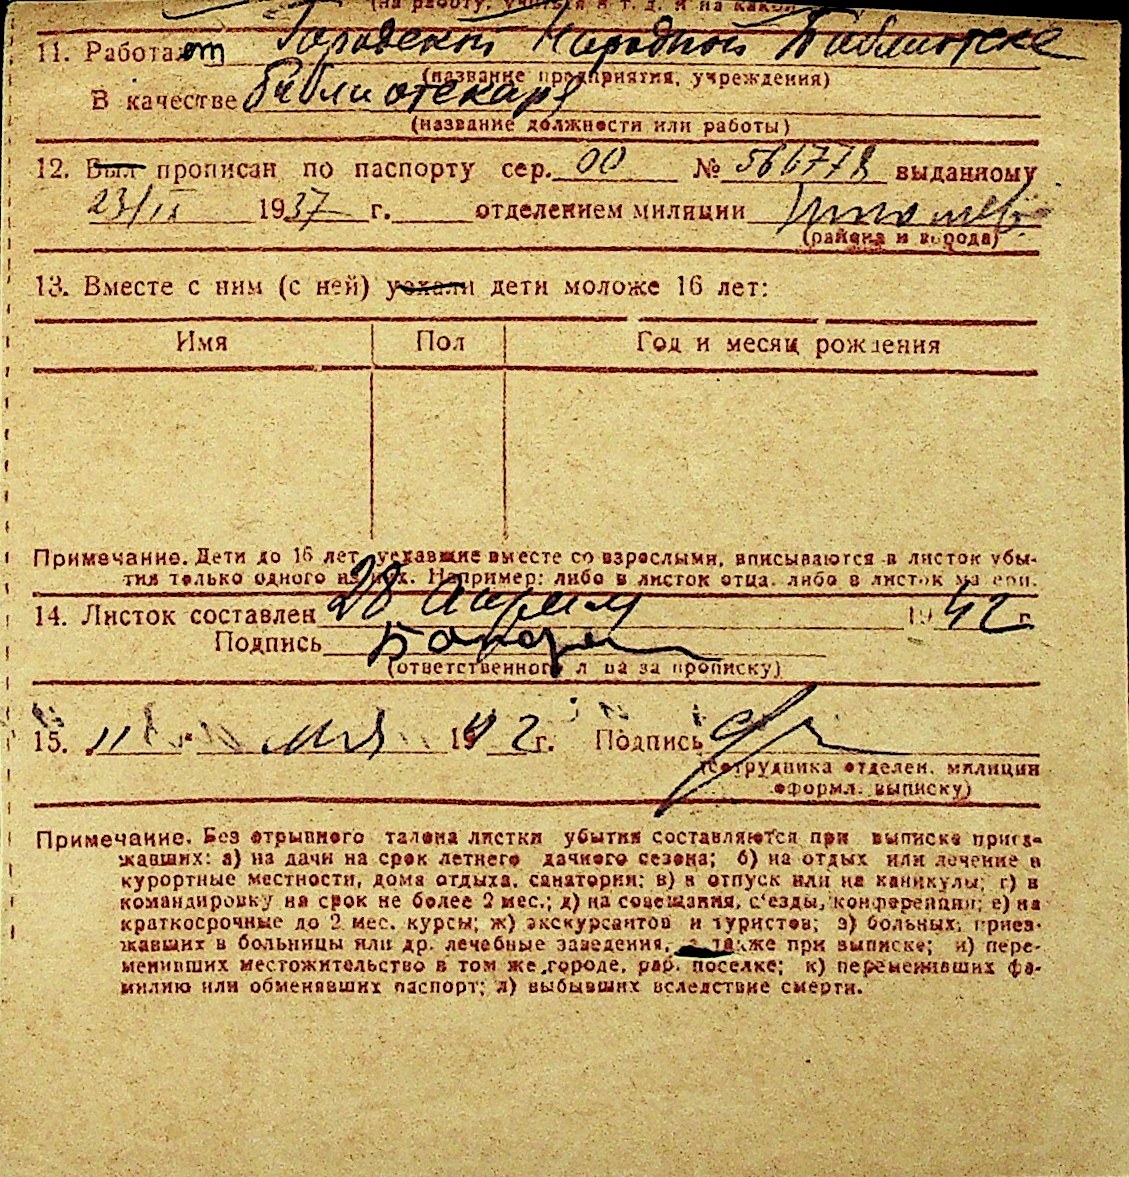 (на работу, учиться и т. д. и на какой
11. Работает Городской Народной Библиотеке
(название предприятия, учреждения)
В качестве Библиотекаря
(название должности или работы)
12. Был прописан по паспорту сер. 00 № 566778 выданному
23/IX 1937 г. отделением милиции
(района и города)
13. Вместе с ним (с ней) уехали дети моложе 16 лет:
Имя Пол Год и месяц рождения
Примечание. Дети до 16 лет, уехавшие вместе со взрослыми, вписываются в листок убы-
тия только одного из них. Например: либо в листок отца, либо в листок матери.
14. Листок составлен 28 Апреля 1942 г.
Подпись
(ответственного лица за прописку)
15. 11 мая 1942 г. Подпись
(сотрудника отделен. милиции
оформл. выписку)
Примечание. Без отрывного талона листки убытия составляются при выписке приез-
жавших: а) на дачи на срок летнего дачного сезона; б) на отдых или лечение в
курортные местности, дома отдыха, санатории; в) в отпуск или на каникулы; г) в
командировку на срок не более 2 мес.; д) на совещания, с'езды, конференции; е) на
краткосрочные до 2 мес. курсы; ж) экскурсантов и туристов; з) больных, приез-
жавших в больницы или др. лечебные заведения, а также при выписке; и) пере-
менивших местожительство в том же городе, раб. поселке; к) переменивших фа-
милию или обменявших паспорт; л) выбывших вследствие смерти.